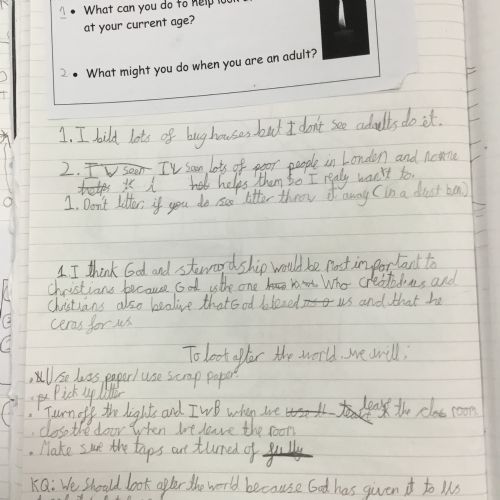 1. What can you do to help look
at your current age?
2. What might you do when you are an adult?
1. I bild lots of bug houses but I don't see adaults do it.
2. I v seen I v seen lots of poor people in Londen and
helps helps them so I realy want to.
1. Don't litter; if you do see litter throw it away (in a dust ben)
1. I think God and stewordship would be most important to
christians because God is the one Who created us and
Christians also bealive that God us and that he
ceras for us
To look after the world we will:
• Use less paper/use scrap paper
• Pick up litter
• Turn off the lights and IWB when we leave the room
• close the door when we leave the room
• Make sure the taps are turned of fully
KQ: We should look after the world because God has given it to us